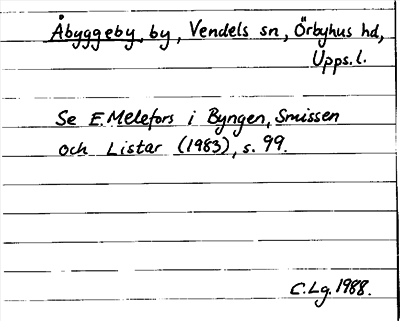 Åbyggeby, by, Vendels sn, Örbyhus hd,
Upps. l.
Se E. Melefors i Byngen, Smissen
och Listar (1983), s. 99.
C. Lg. 1988.